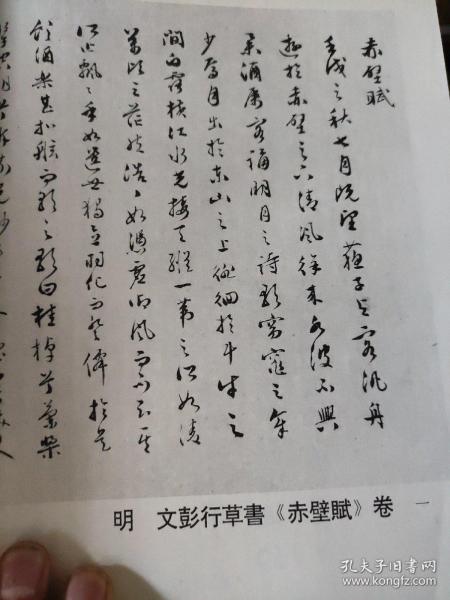 赤壁賦
壬戌之秋七月既望蘇子与客汎舟
遊於赤壁之下清風徐来水波不興
舉酒屬客誦明月之詩歌窈窕之章
少焉月出於東山之上徘徊於斗牛之
間白露橫江水光接天縱一葦之所如淩
萬頃之茫然浩〻如馮虛御風而不知其
所止飄〻乎如遺世獨立羽化而登僊於是
飲酒樂甚扣舷而歌之歌曰桂棹兮蘭槳
明 文彭行草書《赤壁賦》卷 一
孔夫子旧书网
www.kongfz.com